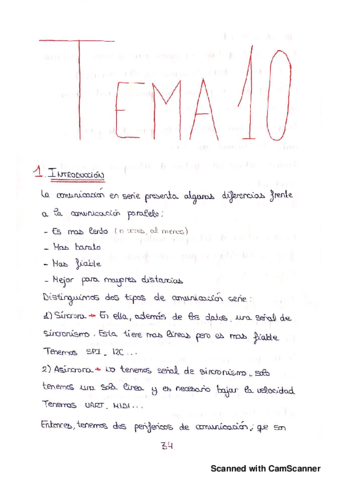 TEMA 10
1. INTRODUCCIÓN
La comunicación en serie presenta algunas diferencias frente
a la comunicación paralelo:
- Es mas lento (n veces al menos)
- Mas barato
- Mas fiable
- Mejor para mayores distancias
Distinguimos dos tipos de comunicación serie:
1) Síncrona → En ella, además de los datos, una señal de
sincronismo. Esta tiene mas líneas pero es mas fiable
Tenemos SPI, I2C...
2) Asíncrona → No tenemos señal de sincronismo, solo
tenemos una sola línea y es necesario bajar la velocidad
Tenemos UART, MIDI...
Entonces, tenemos dos periféricos de comunicación, que son
34
Scanned with CamScanner